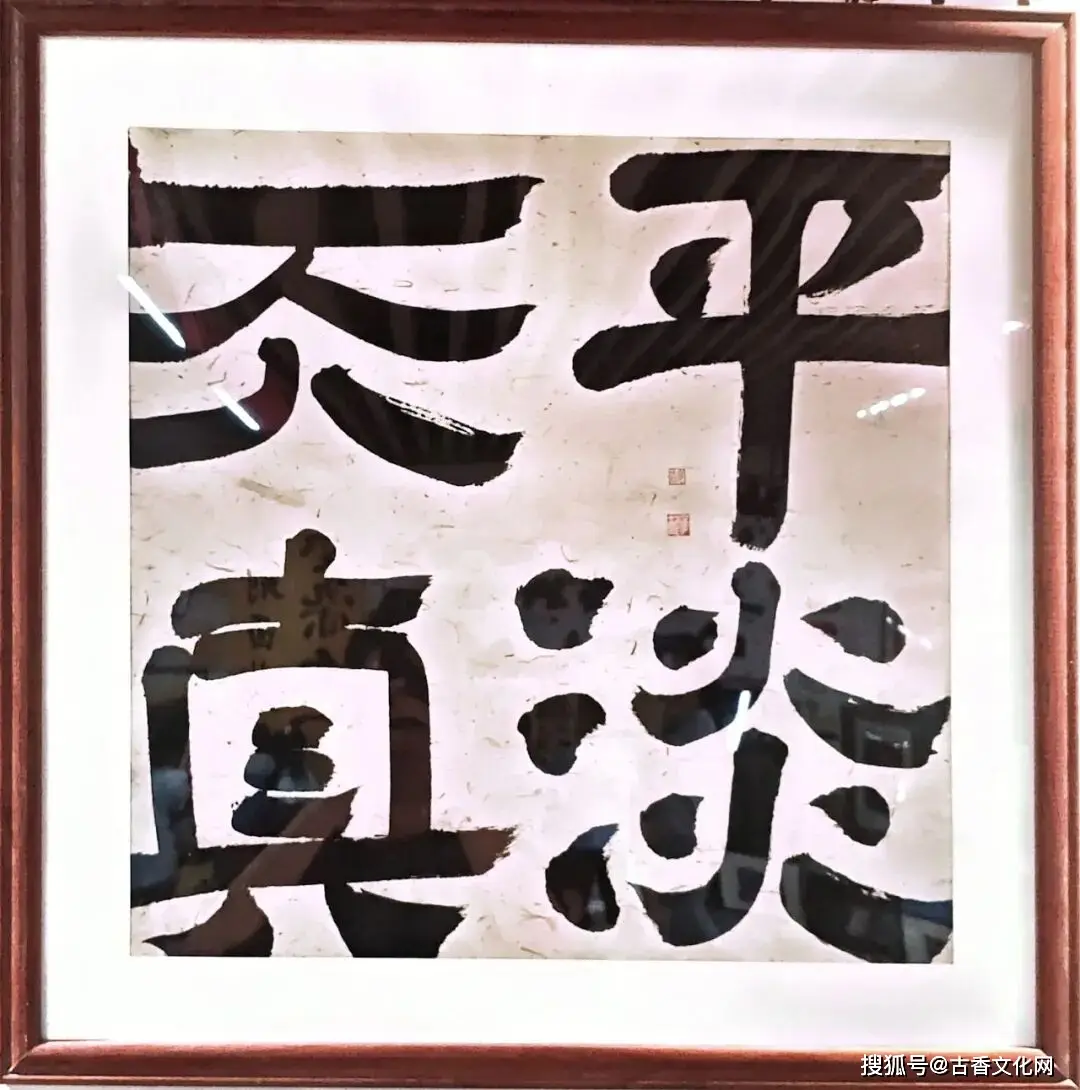 平淡
天真
搜狐号@古香文化网